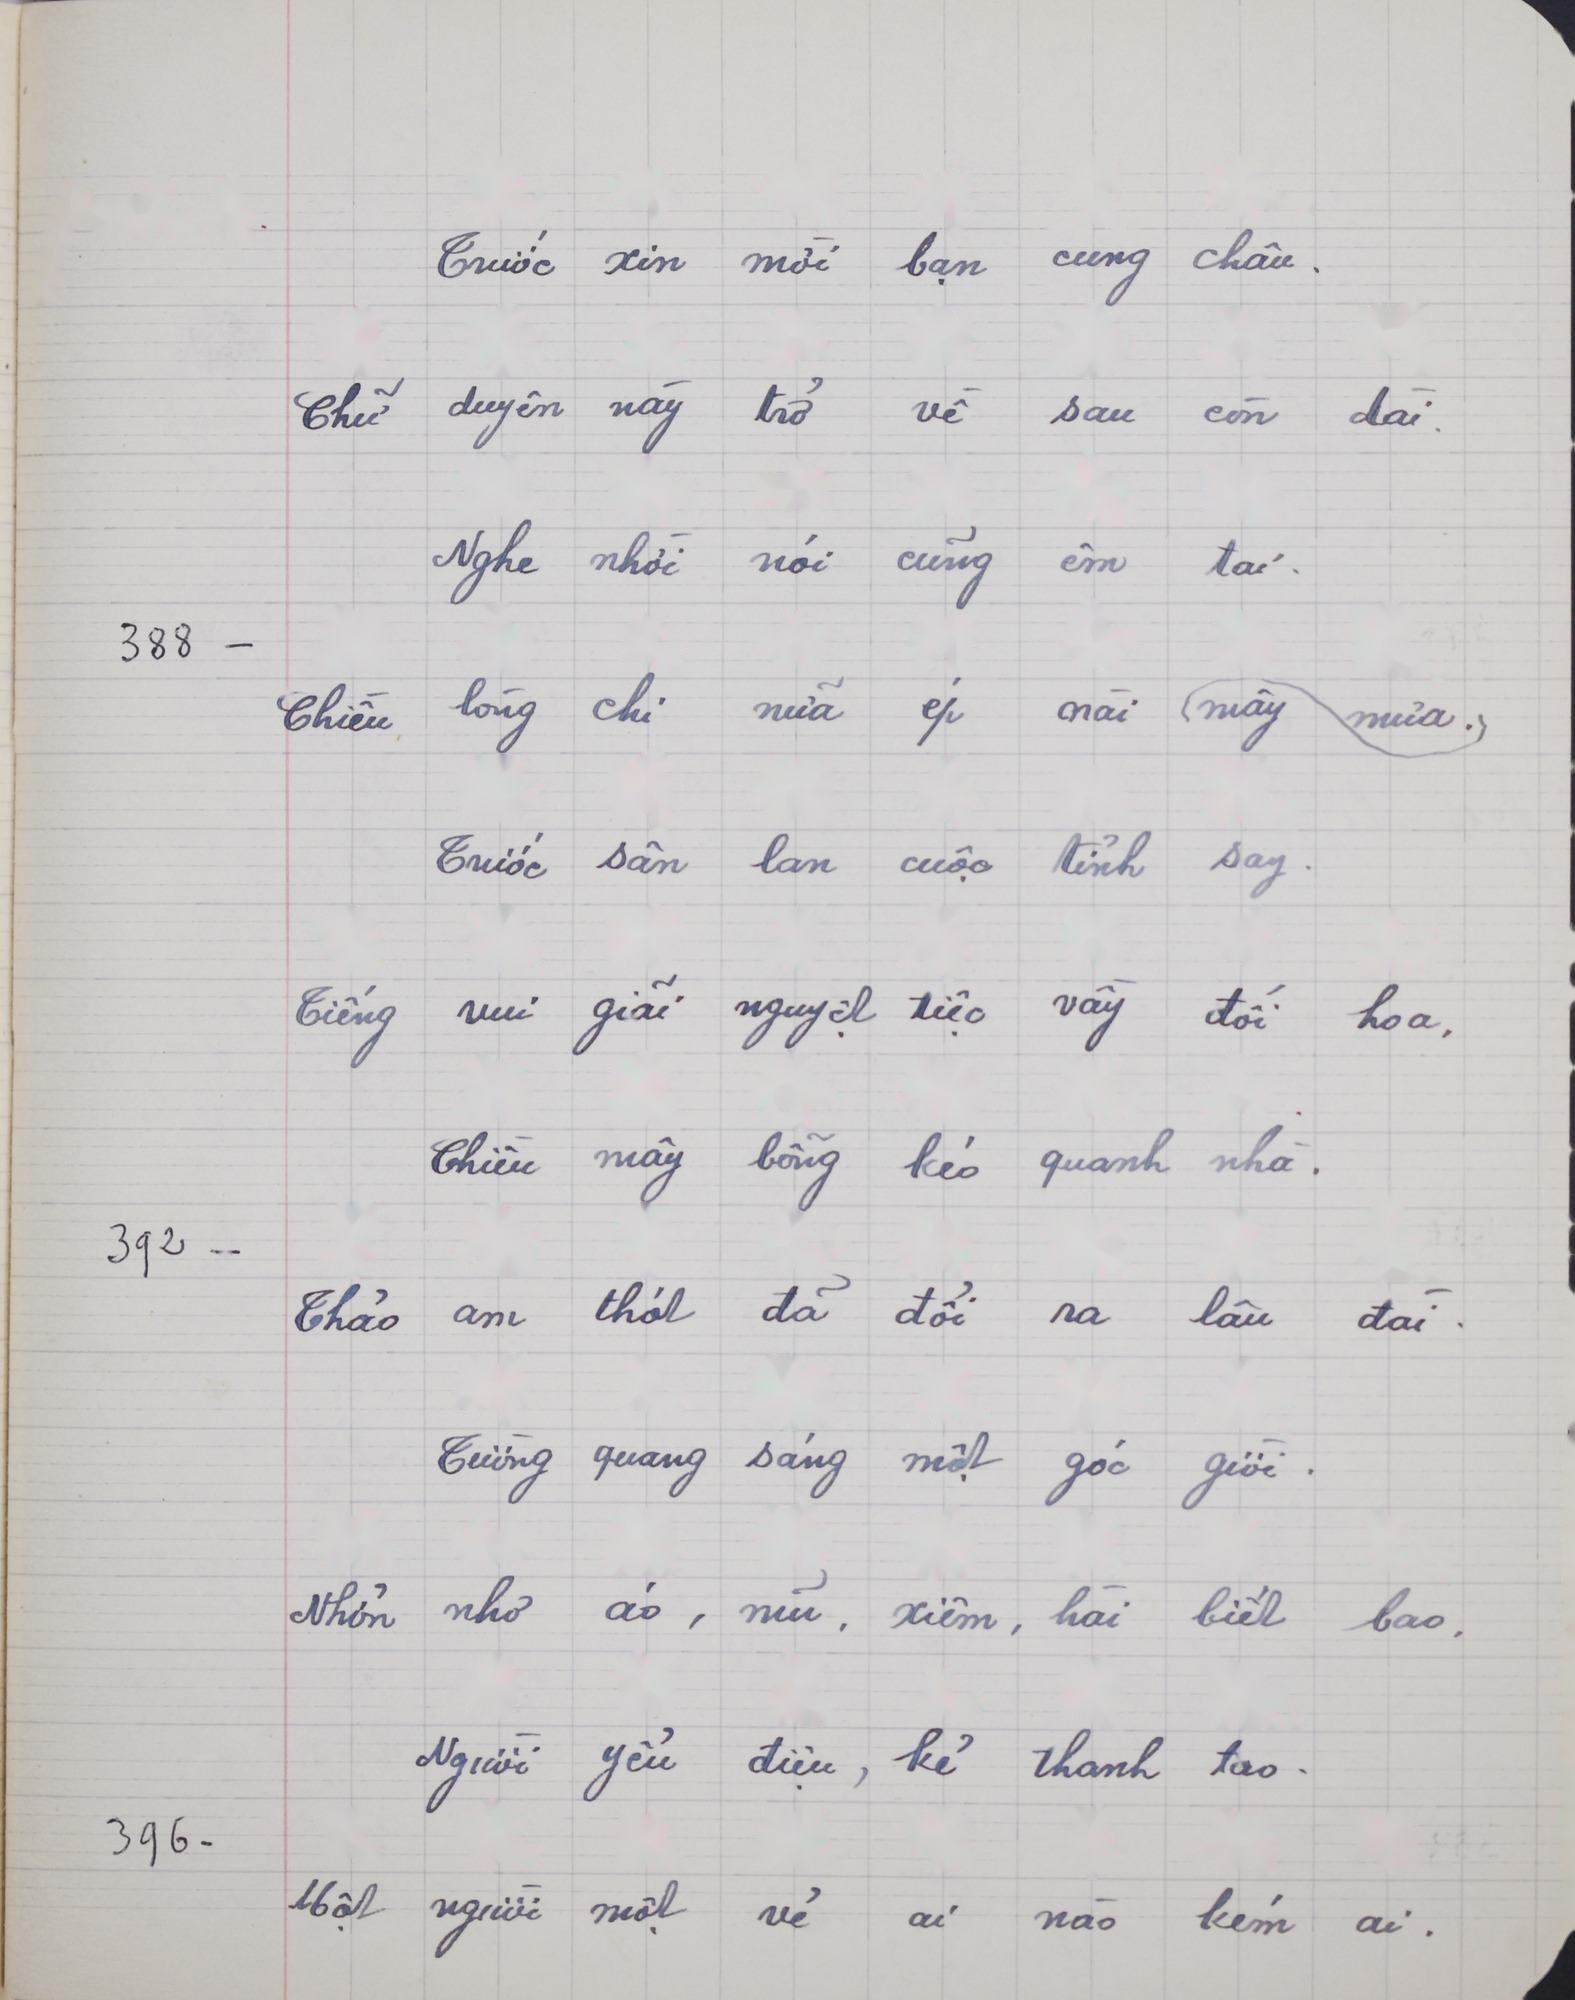 Trước xin mời bạn cung chầu.
Chữ duyên này trở về sau còn dài.
Nghe nhời nói cũng êm tai.
388 -
Chiều lòng chi nữa ép nài (mây mưa.)
Trước sân lan cuộc tỉnh say.
Tiếng vui giãi nguyệt tiệc vầy đối hoa,
Chiều mây bỗng kéo quanh nhà.
392 --
Thảo am thót đã đổi ra lâu đài.
Tường quang sáng một góc giời.
Nhởn nhơ áo, mũ, xiêm, hài biết bao,
Người yểu điệu, kẻ thanh tao.
396-
Một người một vẻ ai nào kém ai.